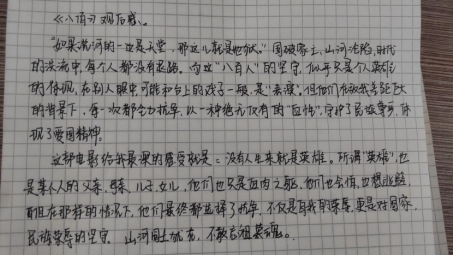 《八佰》观后感。
"如果说河的一边是天堂，那这儿就是地狱。"国破家亡、山河沦陷，时代
的洪流中，每个人都没有退路。而这"八百人"的坚守，似乎只是个人英雄
的体现，在别人眼中可能和台上的戏子一般，是"表演"。但他们在敌我差距巨大
的背景下，每一次都全力抗争，以一种绝无仅有的"血性"，守护了民族尊严，体
现了爱国精神。
这部电影给我最深的感受就是：没有人生来就是英雄。所谓"英雄"，也
是某个人的父亲、母亲、儿子、女儿，他们也只是血肉之躯，他们也会怕，也想逃避，
而但在那样的情况下，他们最终都选择了抗争，不仅是自我的荣辱，更是对国家、
民族荣辱的坚守。山河国土犹在，不敢忘祖英魂。